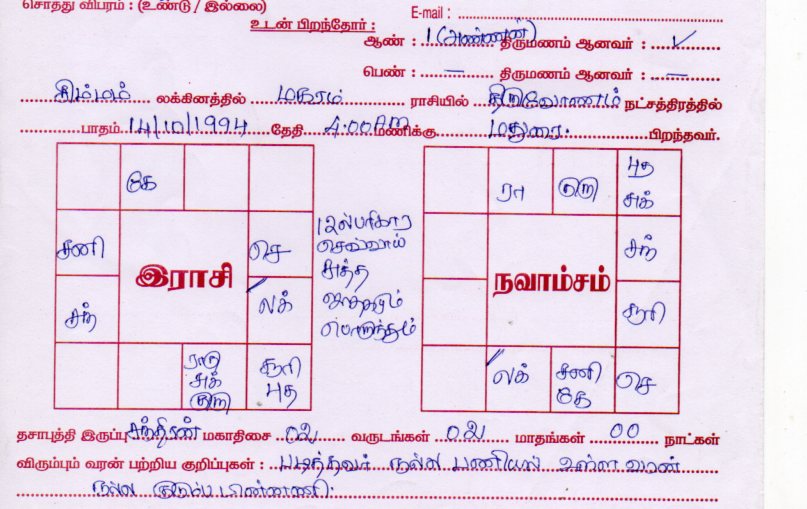 சொத்து விபரம் : (உண்டு / இல்லை)
E-mail :
உடன் பிறந்தோர் :
ஆண் : 1 (அண்ணன்) திருமணம் ஆனவர் : ✓
பெண் : — திருமணம் ஆனவர் : —
சிம்மம் லக்கினத்தில் மகரம் ராசியில் திருவோணம் நட்சத்திரத்தில்
பாதம் 14/10/1994 தேதி 4.00 AM மணிக்கு மதுரை. பிறந்தவர்.
கே
சனி
செ
சந்
லக்
ராகு
சுக்
குரு
சூரி
புத
இராசி
செவ்வாய்
சுத்த
ஜாதகம்
பொருந்தும்
ரா
குரு
புத
சுக்
சந்
சூரி
லக்
சனி
கே
செ
நவாம்சம்
தசாபுத்தி இருப்பு சந்திரன் மகாதிசை 02 வருடங்கள் 02 மாதங்கள் 00 நாட்கள்
விரும்பும் வரன் பற்றிய குறிப்புகள் : படித்தவர் நல்ல பணியில் உள்ள வரன்
நல்ல குடும்ப பின்னணி.